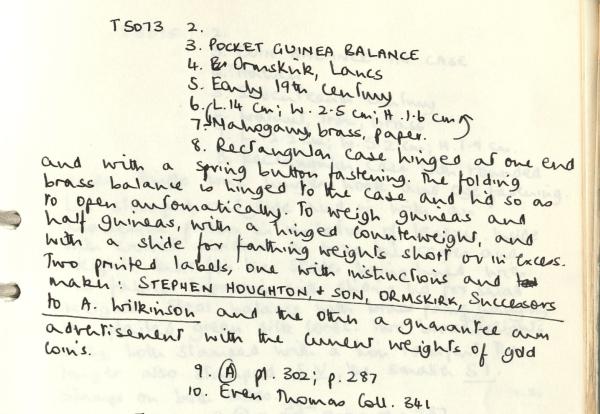 T5073 2.
3. POCKET GUINEA BALANCE
4. Ormskirk, Lancs
5. Early 19th century
6. L. 14 cm; W. 2.5 cm; H. 1.6 cm
7. Mahogany, brass, paper.
8. Rectangular case hinged at one end
and with a spring button fastening. The folding
brass balance is hinged to the case and lid so as
to open automatically. To weigh guineas and
half guineas, with a hinged counterweight, and
with a slide for farthing weights short or in excess.
Two printed labels, one with instructions and
maker: STEPHEN HOUGHTON, + SON, ORMSKIRK, Successors
to A. Wilkinson and the other a guarantee cum
advertisement with the current weights of gold
coins.
9. (A) pl. 302; p. 287
10. Evan Thomas Coll. 341